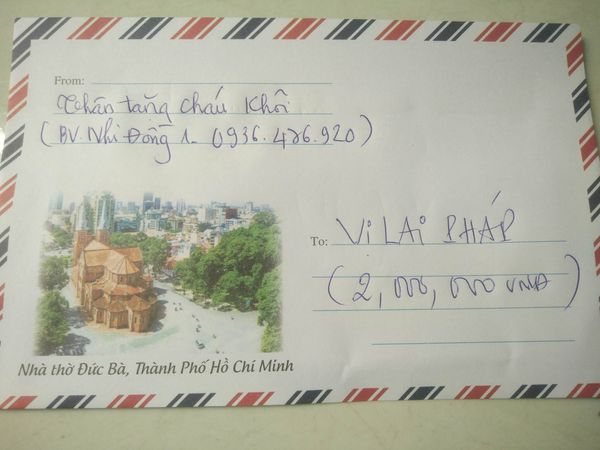 From:
Thân tặng cháu Khôi
(BV. Nhi Đồng 1 - 0936.476.920)
To: VỊ LAI PHÁP
(2,000,000 VNĐ)
Nhà thờ Đức Bà, Thành Phố Hồ Chí Minh